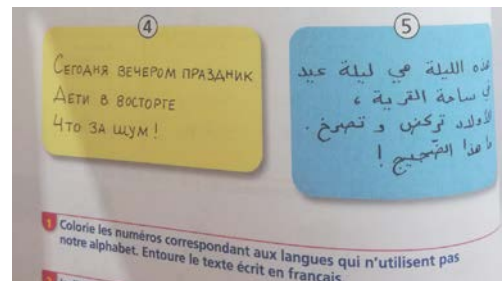 4
СЕГОДНЯ ВЕЧЕРОМ ПРАЗДНИК
ДЕТИ В ВОСТОРГЕ
ЧТО ЗА ШУМ !
5
هذه الليلة هي ليلة عيد
في ساحة القرية ،
الأولاد تركض و تصرخ .
ما هذا الضّجيج !
1 Colorie les numéros correspondant aux langues qui n'utilisent pas
notre alphabet. Entoure le texte écrit en français.